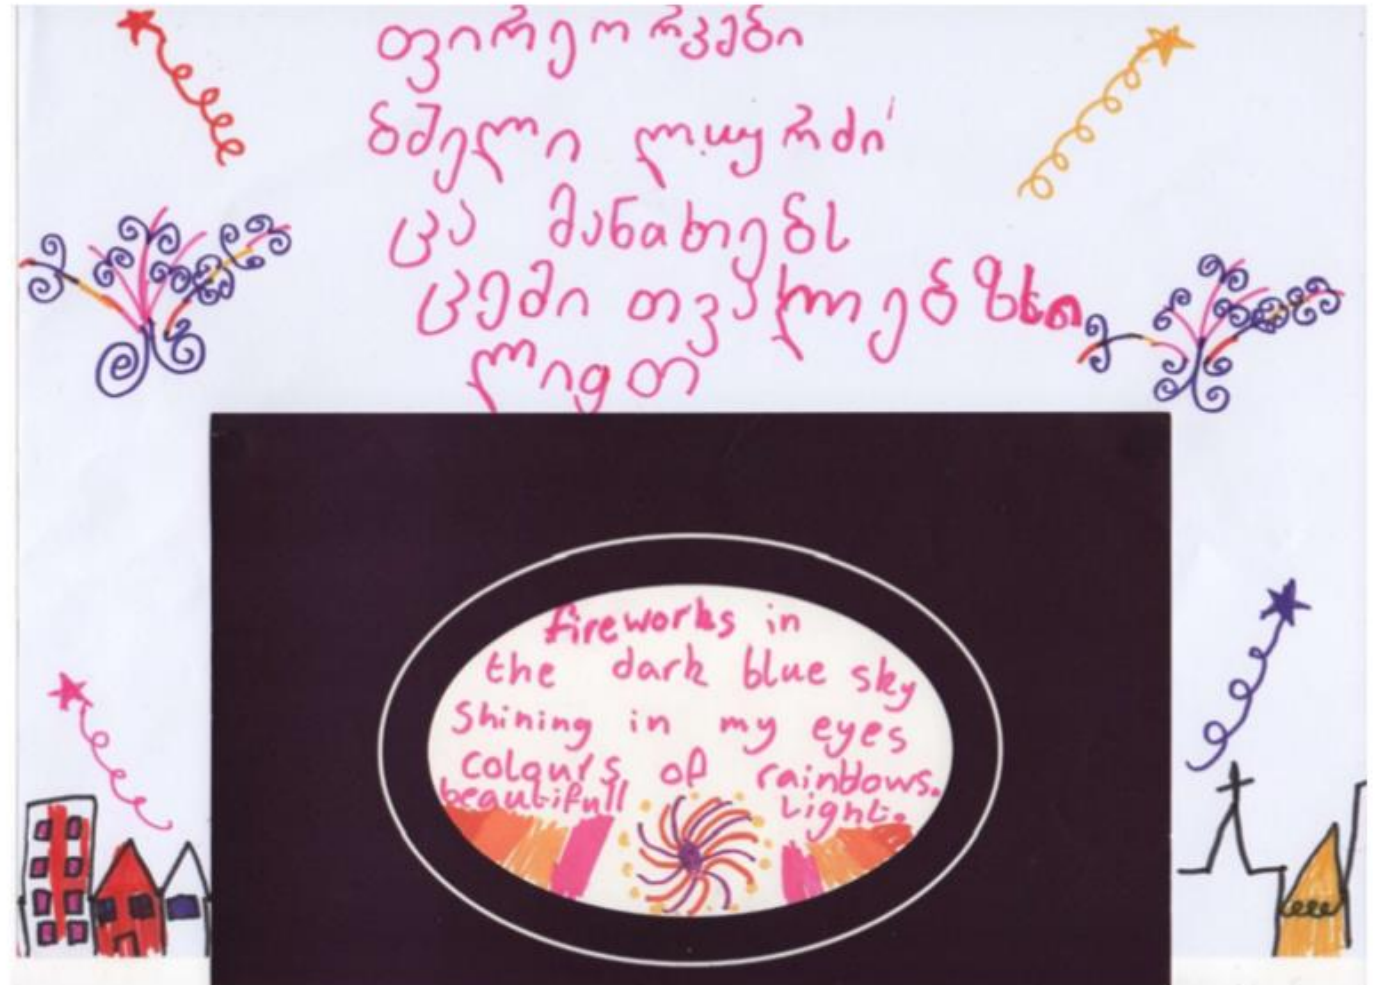 ფირეორკები
ბმელი ლუურძი
ცა მანათებს
ცემი თვალებზსი
ლიგთ
fireworks in
the dark blue sky
shining in my eyes
colours of rainbows.
beautifull light.